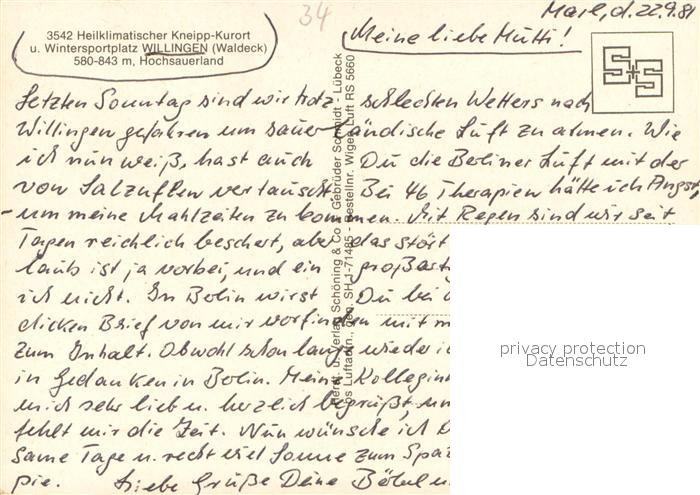 34
Marl, d. 22.9.81
3542 Heilklimatischer Kneipp-Kurort
u. Wintersportplatz WILLINGEN (Waldeck)
580-843 m, Hochsauerland
Meine liebe Mutti!
S+S
Letzten Sonntag sind wir trotz schlechten Wetters nach
Willingen gefahren um sauerländische Luft zu atmen. Wie
ich nun weiß, hast auch Du die Berliner Luft mit der
von Salzuflen vertauscht. Bei 46 Therapien hätte ich Angst,
- um meine Mahlzeiten zu kommen. Mit Regen sind wir seit
Tagen reichlich beschert, aber das stört
laub ist ja vorbei, und ein
ich nicht. In Berlin wirst Du bei
dicken Brief von mir vorfinden mit
zum Inhalt. Obwohl schon lange wieder
in Gedanken in Berlin. Meine Kollegin
mich sehr lieb u. herzlich begrüßt
fehlt mir die Zeit. Nun wünsche ich
same Tage u. recht viel Sonne zum
pie. Liebe Grüße Deine
Verlag Schöning & Co + Gebrüder Schmidt - Lübeck
SHJ-71485 - Bestellnr. Wigen Luft RS 5660
privacy protection
Datenschutz